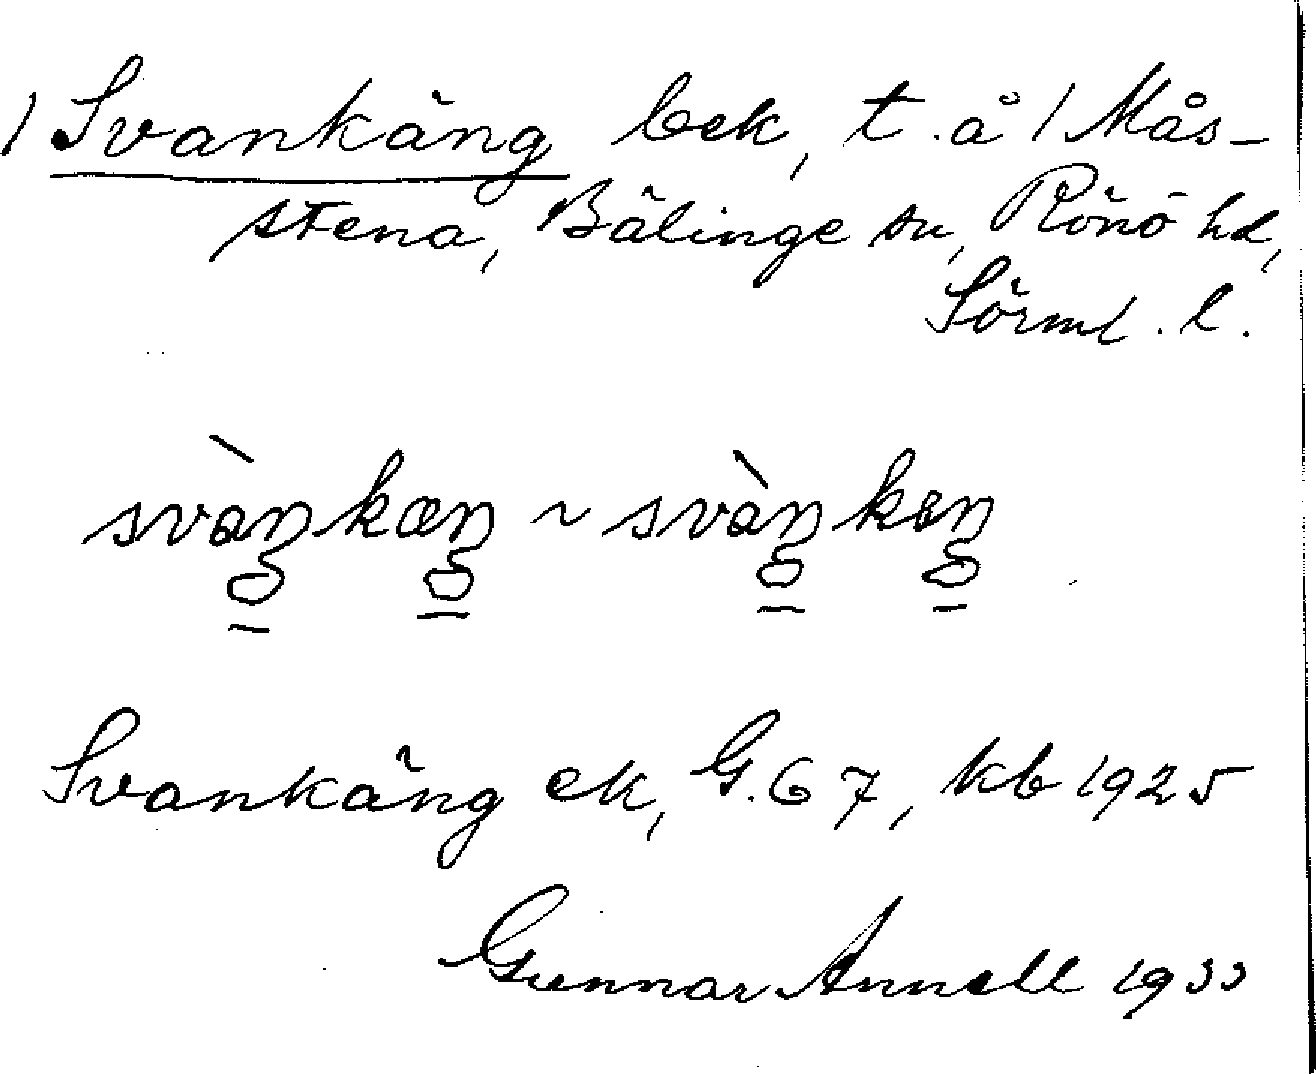 / Svankäng bek, t. å / Mås-
stena, Bälinge sn, Rönö hd,
Sörml. l.
svàŋkæŋ ~ svàŋkeŋ
Svankäng ek, G. 67, kb 1925
Gunnar Annell 1933